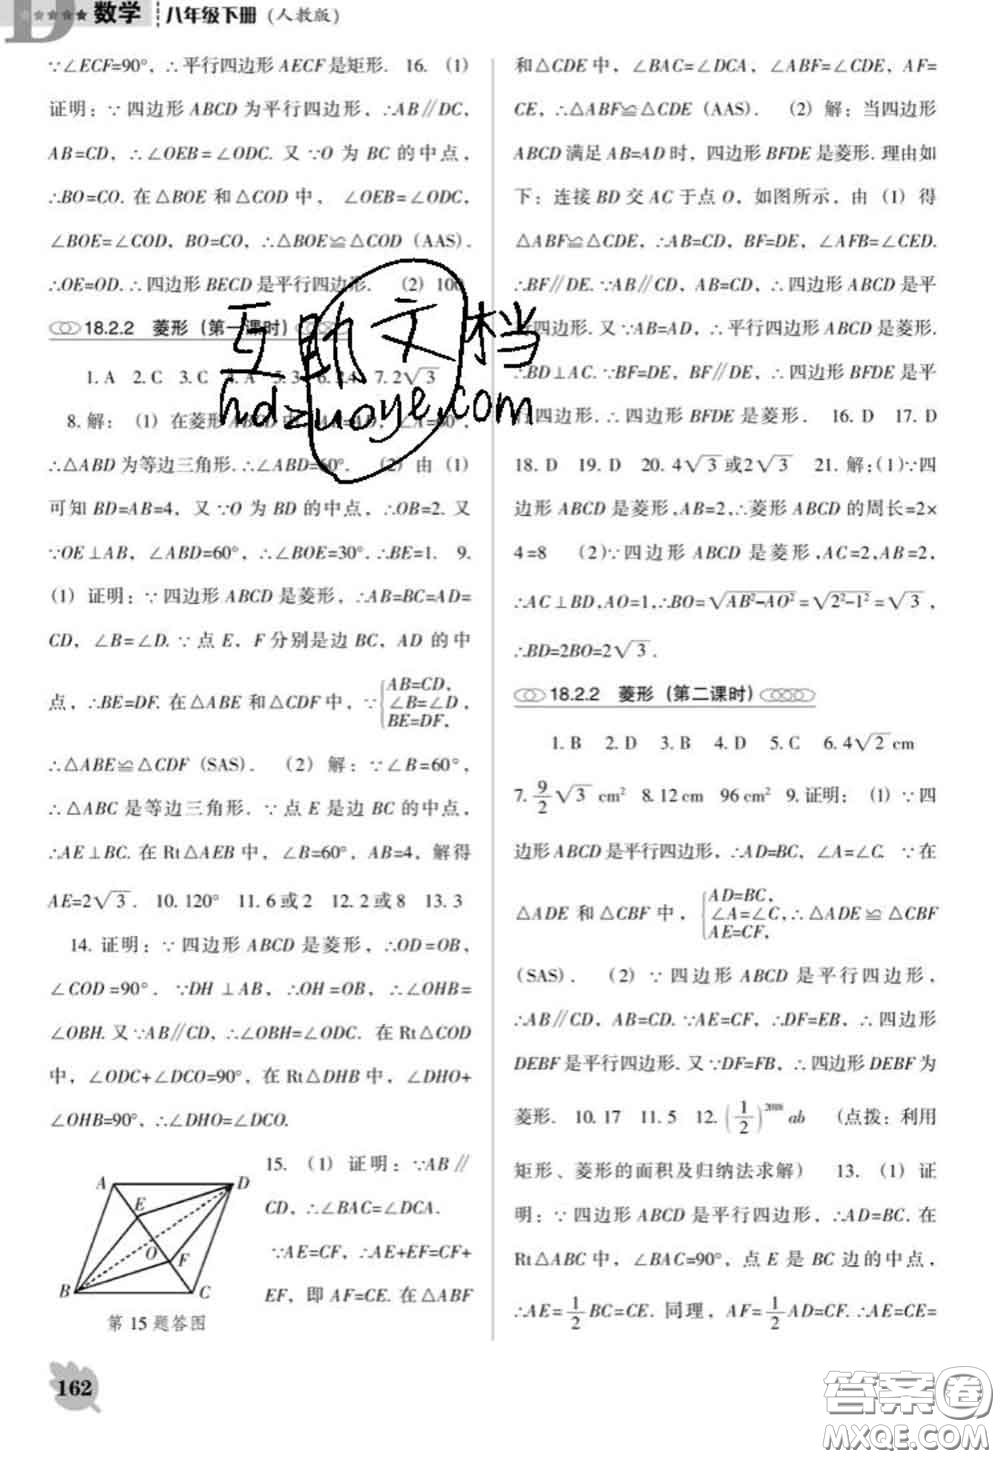 数学 八年级下册（人教版）
∵∠ECF=90°，∴平行四边形 AECF 是矩形. 16. （1）
证明：∵ 四边形 ABCD 为平行四边形，∴AB∥DC，
AB=CD，∴∠OEB=∠ODC. 又∵O 为 BC 的中点，
∴BO=CO. 在△BOE 和△COD 中， ∠OEB=∠ODC，
∠BOE=∠COD，BO=CO，∴△BOE≌△COD（AAS）.
∴OE=OD. ∴四边形 BECD 是平行四边形. （2）100
18.2.2 菱形（第一课时）
1. A 2. C 3. C 4. A 5. 3 6. 24 7. 2√3
8. 解：（1）在菱形 ABCD 中，AB=AD，∠A=60°，
∴△ABD 为等边三角形. ∴∠ABD=60°. （2）由（1）
可知 BD=AB=4，又∵O 为 BD 的中点，∴OB=2. 又
∵OE⊥AB，∠ABD=60°，∴∠BOE=30°. ∴BE=1. 9.
（1）证明：∵四边形 ABCD 是菱形，∴AB=BC=AD=
CD，∠B=∠D. ∵点 E，F 分别是边 BC，AD 的中
点，∴BE=DF. 在△ABE 和△CDF 中，∵{AB=CD，
∠B=∠D，
BE=DF，
∴△ABE≌△CDF（SAS）. （2）解：∵∠B=60°，
∴△ABC 是等边三角形. ∵点 E 是边 BC 的中点，
∴AE⊥BC. 在 Rt△AEB 中，∠B=60°，AB=4，解得
AE=2√3. 10. 120° 11. 6 或 2 12. 2 或 8 13. 3
14. 证明：∵四边形 ABCD 是菱形，∴OD=OB，
∠COD=90°. ∵DH⊥AB，∴OH=OB，∴∠OHB=
∠OBH. 又∵AB∥CD，∴∠OBH=∠ODC. 在 Rt△COD
中，∠ODC+∠DCO=90°，在 Rt△DHB 中，∠DHO+
∠OHB=90°，∴∠DHO=∠DCO.
15. （1）证明：∵AB∥
CD，∴∠BAC=∠DCA.
∵AE=CF，∴AE+EF=CF+
EF，即 AF=CE. 在△ABF
A D E O F B C
第 15 题答图
和△CDE 中，∠BAC=∠DCA，∠ABF=∠CDE，AF=
CE，∴△ABF≌△CDE（AAS）. （2）解：当四边形
ABCD 满足 AB=AD 时，四边形 BFDE 是菱形. 理由如
下：连接 BD 交 AC 于点 O，如图所示，由（1）得
△ABF≌△CDE，∴AB=CD，BF=DE，∠AFB=∠CED.
∴BF∥DE. ∵AB∥CD，AB=CD，∴四边形 ABCD 是平
行四边形. 又∵AB=AD，∴平行四边形 ABCD 是菱形.
∴BD⊥AC. ∵BF=DE，BF∥DE，∴四边形 BFDE 是平
行四边形. ∴四边形 BFDE 是菱形. 16. D 17. D
18. D 19. D 20. 4√3或2√3 21. 解：（1）∵四
边形 ABCD 是菱形，AB=2，∴菱形 ABCD 的周长=2×
4=8 （2）∵四边形 ABCD 是菱形，AC=2，AB=2，
∴AC⊥BD，AO=1，∴BO=√(AB²−AO²)=√(2²−1²)=√3，
∴BD=2BO=2√3.
18.2.2 菱形（第二课时）
1. B 2. D 3. B 4. D 5. C 6. 4√2 cm
7. 9/2√3 cm² 8. 12 cm 96 cm² 9. 证明：（1）∵四
边形 ABCD 是平行四边形，∴AD=BC，∠A=∠C. ∵在
△ADE 和△CBF 中，{AD=BC，
∠A=∠C，∴△ADE≌△CBF
AE=CF，
（SAS）. （2）∵四边形 ABCD 是平行四边形，
∴AB∥CD，AB=CD. ∵AE=CF，∴DF=EB，∴四边形
DEBF 是平行四边形. 又∵DF=FB，∴四边形 DEBF 为
菱形. 10. 17 11. 5 12. (1/2)²⁰¹⁸ab （点拨：利用
矩形、菱形的面积及归纳法求解） 13. （1）证
明：∵四边形 ABCD 是平行四边形，∴AD=BC. 在
Rt△ABC 中，∠BAC=90°，点 E 是 BC 边的中点，
∴AE=1/2BC=CE. 同理，AF=1/2AD=CF. ∴AE=CE=
162
互助文档
hdzuoye.com
答案圈
MXQE.COM